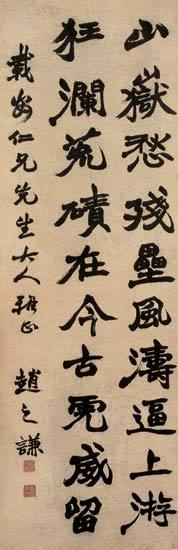 山嶽愁殘壘風濤逼上游
狂瀾荒磧在今古虎威留
仁兄先生大人雅正
趙之謙